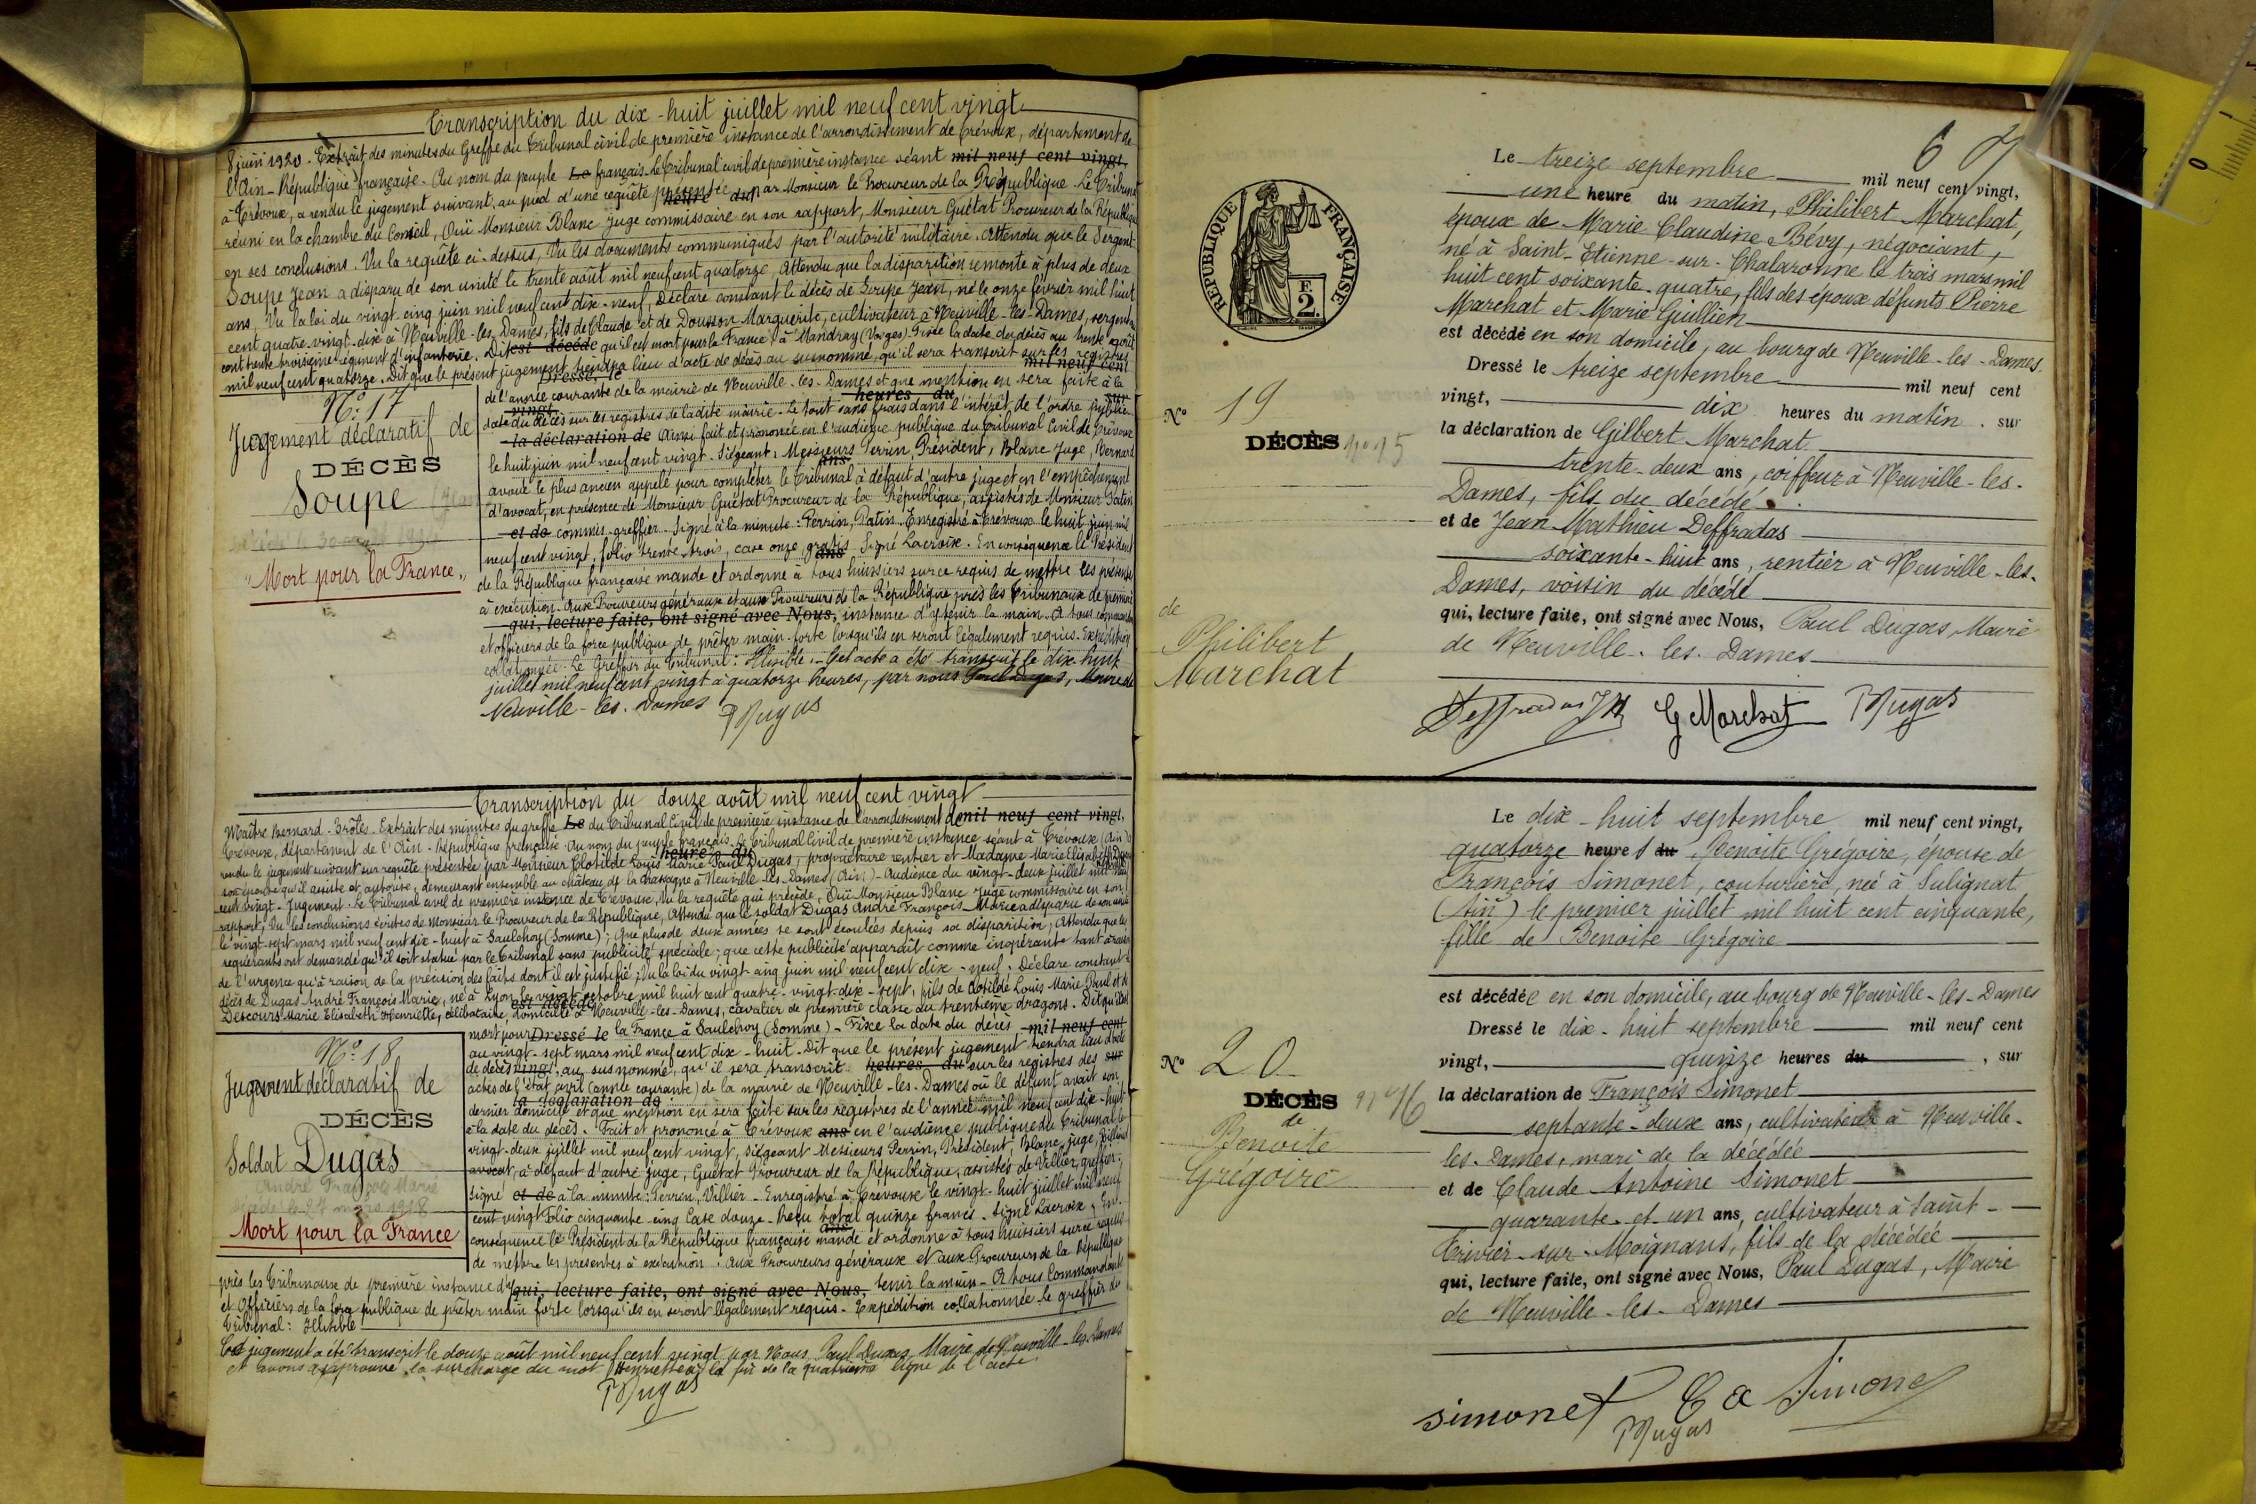 Transcription du dix-huit juillet mil neuf cent vingt
8 juin 1920. Extrait des minutes du Greffe du Tribunal civil de première instance de l'arrondissement de Trévoux, département de
l'Ain - République française - Au nom du peuple Le français - Le Tribunal civil de première instance séant mil neuf cent vingt,
à Trévoux, a rendu le jugement suivant, au pied d'une requête présentée heure du par Monsieur le Procureur de la République - Le Tribunal
réuni en la chambre du Conseil, Ouï Monsieur Blanc Juge commissaire en son rapport, Monsieur Guétat Procureur de la République
en ses conclusions. Vu la requête ci-dessus, Vu les documents communiqués par l'autorité militaire. Attendu que le Sergent
Soupe Jean a disparu de son unité le trente août mil neuf cent quatorze, Attendu que la disparition remonte à plus de deux
ans, Vu la loi du vingt-cinq juin mil neuf cent dix-neuf, Déclare constant le décès de Soupe Jean, né le onze février mil huit
cent quatre-vingt-dix à Neuville-les-Dames, fils de Claude et de Dousson Marguerite, cultivateur à Neuville-les-Dames, sergent au
cent trente troisième régiment d'infanterie. Dit est décédé qu'il est mort pour la France à Mandray (Vosges) Fixe la date du décès au trente août
mil neuf cent quatorze. Dit que le présent jugement tiendra lieu d'acte de décès au susnommé, qu'il sera transcrit sur les registres
Dressé, le mil neuf cent
de l'année courante de la mairie de Neuville-les-Dames et que mention en sera faite à la
vingt, heures du sur
date du décès sur les registres de ladite mairie - Le tout sans frais dans l'intérêt de l'ordre public -
la déclaration de Ainsi fait et prononcé en l'audience publique du Tribunal Civil de Trévoux
le huit juin mil neuf cent vingt - Siégeant: Messieurs Perrin, Président, Blanc Juge, Bernard
ans
avoué le plus ancien appelé pour compléter le Tribunal à défaut d'autre juge et en l'empêchement
d'avocat, en présence de Monsieur Guétat Procureur de la République, assistés de Monsieur Patin
et de commis-greffier. Signé à la minute: Perrin, Patin. Enregistré à Trévoux le huit juin mil
neuf cent vingt, folio trente trois, case onze, gratis ans Signé Lacroix. En conséquence le Président
de la République française mande et ordonne à tous huissiers sur ce requis de mettre les présentes
à exécution. Aux Procureurs généraux et aux Procureurs de la République près les Tribunaux de première
qui, lecture faite, ont signé avec Nous, instance d'y tenir la main. A tous commandants
et officiers de la force publique de prêter main-forte lorsqu'ils en seront légalement requis. Expédition
collationnée. Le Greffier du Tribunal: Illisible. Cet acte a été transcrit le dix-huit
juillet mil neuf cent vingt à quatorze heures, par nous Paul Dugas, Maire de
Neuville-les-Dames PDugas
N° 17
Jugement déclaratif de
DÉCÈS
Soupe Jean
décédé le 30 août 1914
"Mort pour la France"
Transcription du douze août mil neuf cent vingt
Maître Bernard - Brôtes - Extrait des minutes du greffe Le du Tribunal Civil de première instance de l'arrondissement de mil neuf cent vingt,
Trévoux, département de l'Ain - République française - Au nom du peuple français - Le Tribunal Civil de première instance séant à Trévoux (Ain) a
heure du
rendu le jugement suivant sur requête présentée par Monsieur Clotilde Louis Marie Paul Dugas, propriétaire rentier et Madame Marie Elisabeth
son épouse qu'il assiste et autorise, demeurant ensemble au château de la Chassagne à Neuville-les-Dames (Ain) - Audience du vingt-deux juillet mil neuf
cent vingt - Jugement - Le Tribunal civil de première instance de Trévoux, Vu la requête qui précède, Ouï Monsieur Blanc Juge commissaire en son
rapport, Vu les conclusions écrites de Monsieur le Procureur de la République, Attendu que le soldat Dugas André François-Marie a disparu de son unité
le vingt-sept mars mil neuf cent dix-huit à Saulchoy (Somme); Que plus de deux années se sont écoulées depuis sa disparition; Attendu que les
requérants ont demandé qu'il soit statué par le Tribunal sans publicité spéciale; que cette publicité apparaît comme inopérante tant à raison
de l'urgence qu'à raison de la précision des faits dont il est justifié; Vu la loi du vingt-cinq juin mil neuf cent dix-neuf; Déclare constant le
décès de Dugas André François Marie, né à Lyon le vingt octobre mil huit cent quatre-vingt-dix-sept, fils de Clotilde Louis Marie Paul et de
est décédé
Descours Marie Elisabeth Henriette, célibataire, domicilié à Neuville-les-Dames, cavalier de première classe du trentième dragons. Dit qu'il est
mort pour Dressé le la France à Saulchoy (Somme) - Fixe la date du décès mil neuf cent
au vingt-sept mars mil neuf cent dix-huit - Dit que le présent jugement tiendra lieu d'acte
de décès vingt, au susnommé, qu'il sera transcrit heures du sur les registres des sur
actes de l'état civil (année courante) de la mairie de Neuville-les-Dames où le défunt avait son
la déclaration de
dernier domicile et que mention en sera faite sur les registres de l'année mil neuf cent dix-huit
à la date du décès. Fait et prononcé à Trévoux ans en l'audience publique du Tribunal le
vingt-deux juillet mil neuf cent vingt, siégeant Messieurs Perrin, Président, Blanc, juge,
avocat, à défaut d'autre juge, Guétat Procureur de la République, assistés de Villier, greffier;
signé et de à la minute: Perrin, Villier - Enregistré à Trévoux le vingt-huit juillet mil neuf
cent vingt Folio cinquante-cinq Case douze - Reçu total quinze francs - Signé Lacroix, En
ans
conséquence le Président de la République française mande et ordonne à tous huissiers sur ce requis
de mettre les présentes à exécution. Aux Procureurs généraux et aux Procureurs de la République
près les Tribunaux de première instance d'y qui, lecture faite, ont signé avec Nous, tenir la main - A tous Commandants
et Officiers de la force publique de prêter main forte lorsqu'ils en seront légalement requis - Expédition collationnée - le greffier du
Tribunal: Illisible
Ce jugement a été transcrit le douze août mil neuf cent vingt par Nous Paul Dugas Maire de Neuville-les-Dames
et avons approuvé la surcharge du mot Henriette à la fin de la quatrième ligne de l'acte
PDugas
N° 18
Jugement déclaratif de
DÉCÈS
Soldat Dugas
André François Marie
décédé le 27 mars 1918
Mort pour la France
6
RÉPUBLIQUE FRANÇAISE
F.
2.
N° 19
DÉCÈS n° 15
de
Philibert
Marchat
Le treize septembre mil neuf cent vingt,
une heure du matin, Philibert Marchat,
époux de Marie Claudine Bévy, négociant,
né à Saint-Etienne-sur-Chalaronne le trois mars mil
huit cent soixante-quatre, fils des époux défunts Pierre
Marchat et Marie Guillien
est décédé en son domicile, au bourg de Neuville-les-Dames.
Dressé le treize septembre mil neuf cent
vingt, dix heures du matin, sur
la déclaration de Gilbert Marchat
trente-deux ans, coiffeur à Neuville-les-
Dames, fils du décédé
et de Jean Mathieu Deffradas
soixante-huit ans, rentier à Neuville-les-
Dames, voisin du décédé
qui, lecture faite, ont signé avec Nous, Paul Dugas Maire
de Neuville-les-Dames
Deffradas JM G Marchat PDugas
N° 20
DÉCÈS 16
de
Benoite
Grégoire
Le dix-huit septembre mil neuf cent vingt,
quatorze heures du Benoite Grégoire, épouse de
François Simonet, couturière, née à Sulignat
(Ain) le premier juillet mil huit cent cinquante,
fille de Benoite Grégoire
est décédée en son domicile, au bourg de Neuville-les-Dames
Dressé le dix-huit septembre mil neuf cent
vingt, quinze heures du, sur
la déclaration de François Simonet
septante-deux ans, cultivateur à Neuville-
les-Dames, mari de la décédée
et de Claude Antoine Simonet
quarante-et-un ans, cultivateur à Saint-
Trivier-sur-Moignans, fils de la décédée
qui, lecture faite, ont signé avec Nous, Paul Dugas, Maire
de Neuville-les-Dames
simonet C a Simonet
PDugas